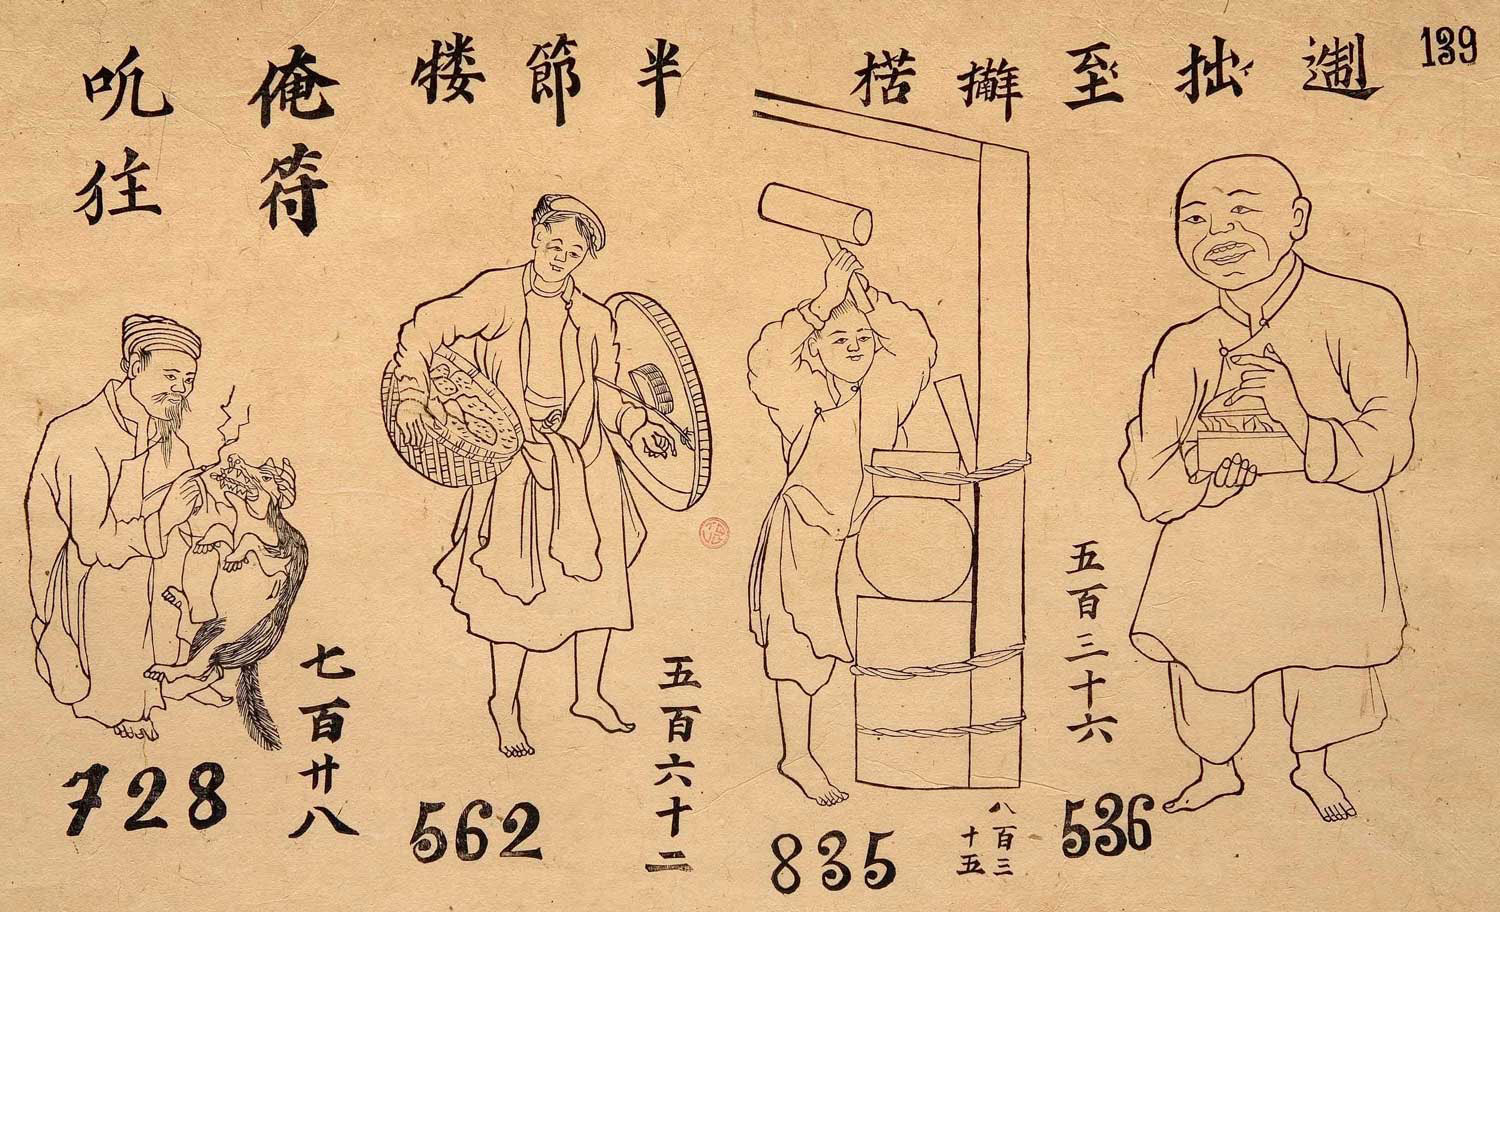 139
拙至
楛
半節
俺符
五百三十六
536
八百三
十五
835
五百六十二
562
七百廿八
728